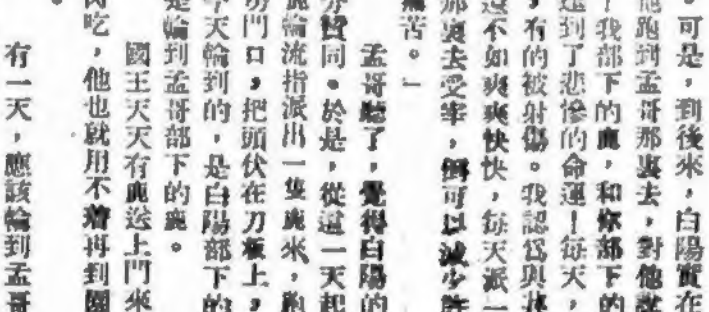 。可是，到後來，白陽實在
他跑到孟哥那裏去，對他說
！我部下的鹿，和你部下的
遭到了悲慘的命運！每天，
，有的被射傷。我認爲與其
還不如爽爽快快，每天派一
那裏去受宰，倒可以減少許
痛苦。」
孟哥聽了，覺得白陽的
亦贊同。於是，從這一天起
鹿輪流指派出一隻鹿來，跑
房門口，把頭伏在刀板上，
今天輪到的，是白陽部下的
是輪到孟哥部下的鹿。
國王天天有鹿送上門來
肉吃，他也就用不着再到園
。
有一天，應該輪到孟哥